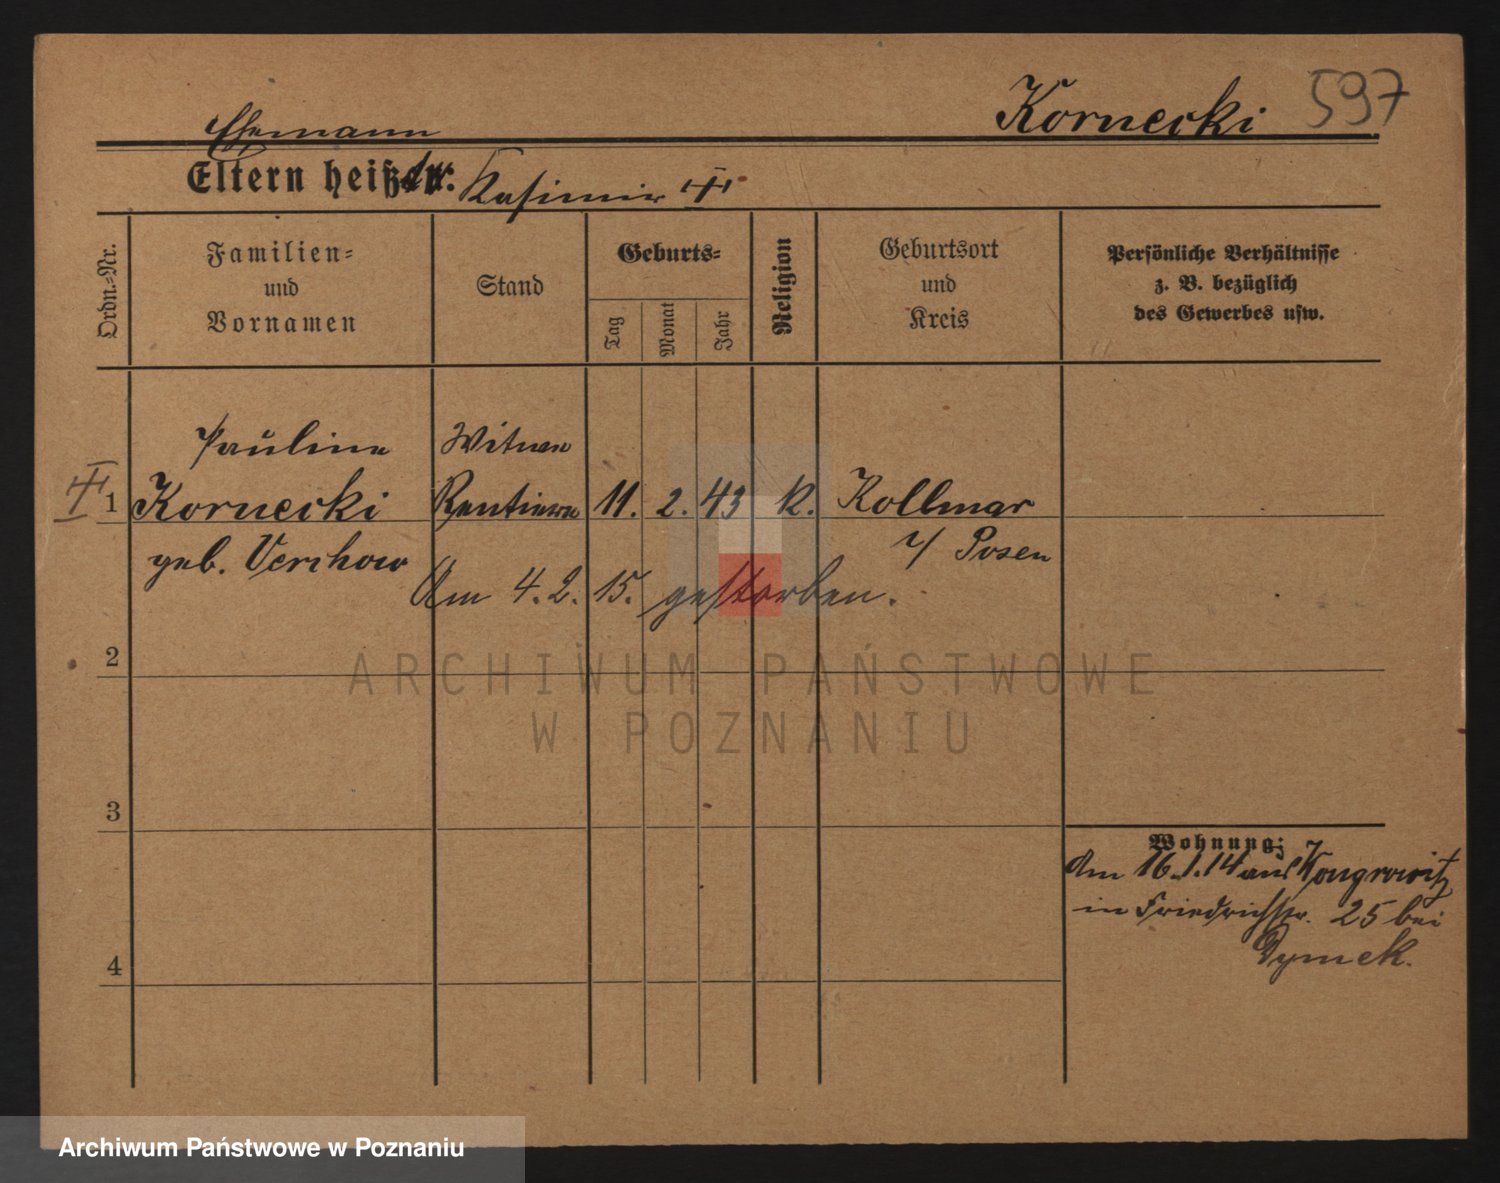 Kornecki 597
Ehemann
Eltern heißt
Kasimir
Ordn.=Nr.
Familien=
und
Vornamen
Stand
Geburts=
Tag
Monat
Jahr
Religion
Geburtsort
und
Kreis
Persönliche Verhältnisse
z. B. bezüglich
des Gewerbes usw.
Pauline Witwe
1 Kornecki Rentiere 11. 2. 43 K. Kollmar
geb. Verchow i/ Posen
Am 4. 2. 15. gestorben.
2
ARCHIWUM PAŃSTWOWE
W POZNANIU
3
Wohnung:
Am 16.1.14 aus Wongrowitz
in Friedrichstr. 25 bei
Dymek.
4
Archiwum Państwowe w Poznaniu